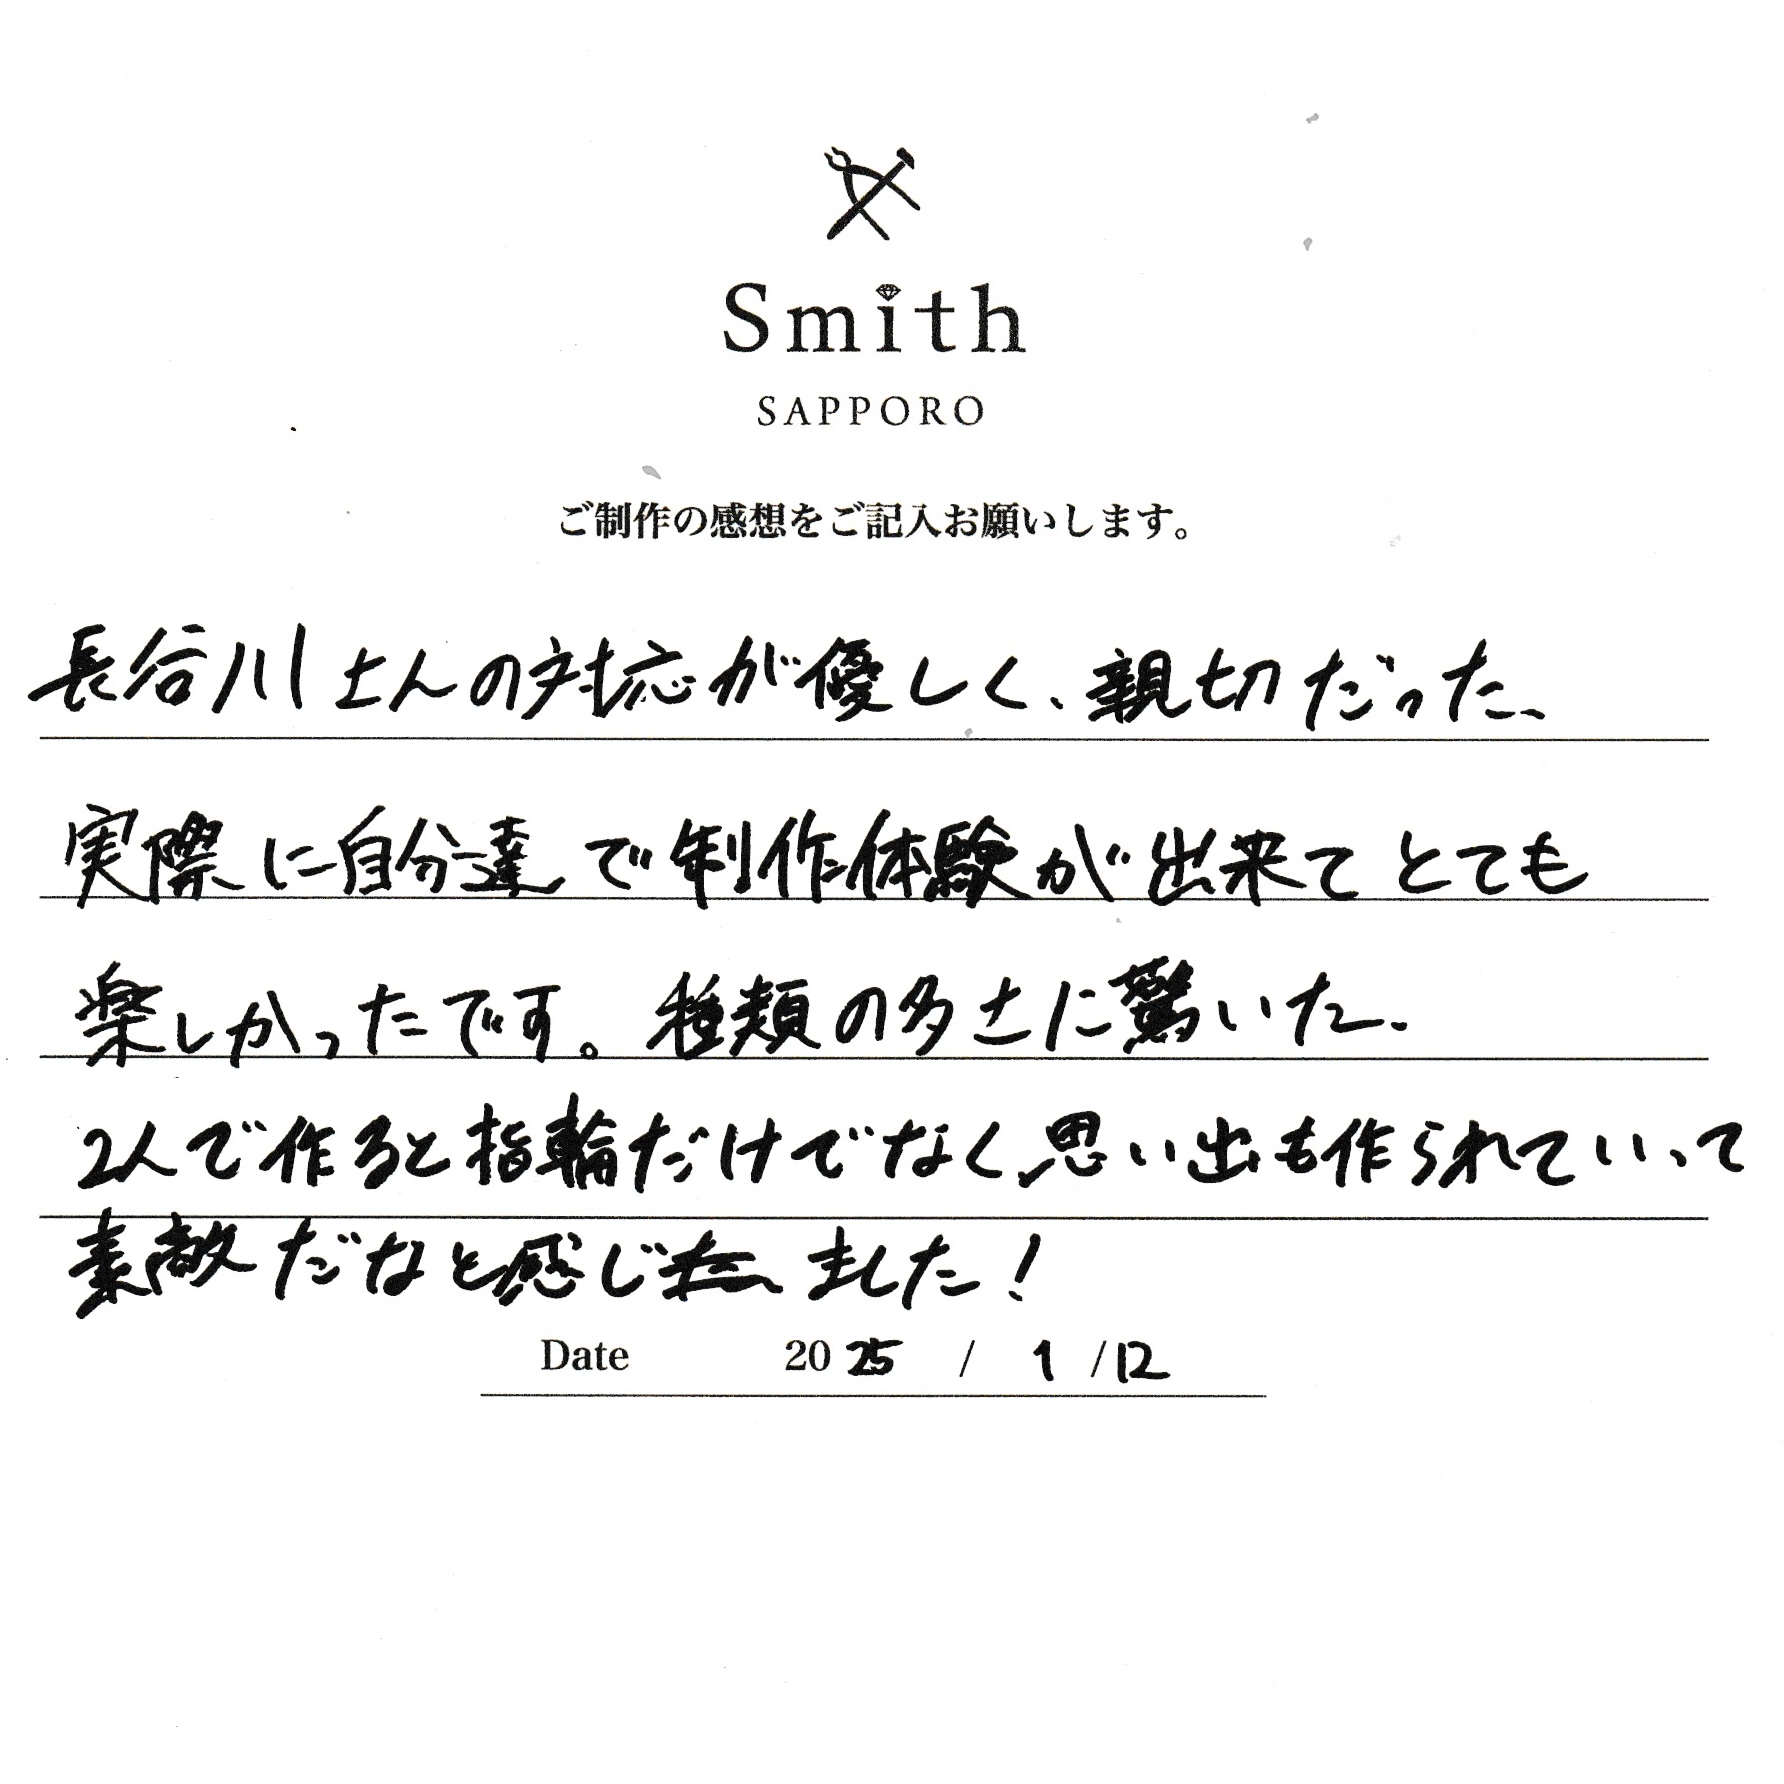 Smith
SAPPORO
ご制作の感想をご記入お願いします。
長谷川さんの対応が優しく、親切だった、
実際に自分達で制作体験が出来てとても
楽しかったです。種類の多さに驚いた.
2人で作ると指輪だけでなく思い出も作られていって
素敵だなと感じました!
Date 2025 / 1 /12